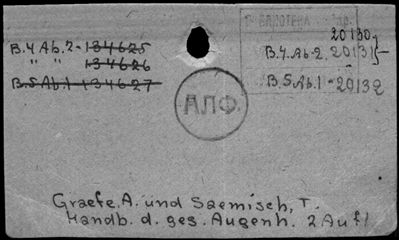 БИБЛИОТЕКА
B.4 Ab.2-134625
" " 134626
B.5 Ab.1-134627
20130
B.4.Ab-2. 20131
B.5 Ab.1-20132
АЛФ.
Graefe, A. und Saemisch, T.
Handb. d. ges. Augenh. 2 Aufl